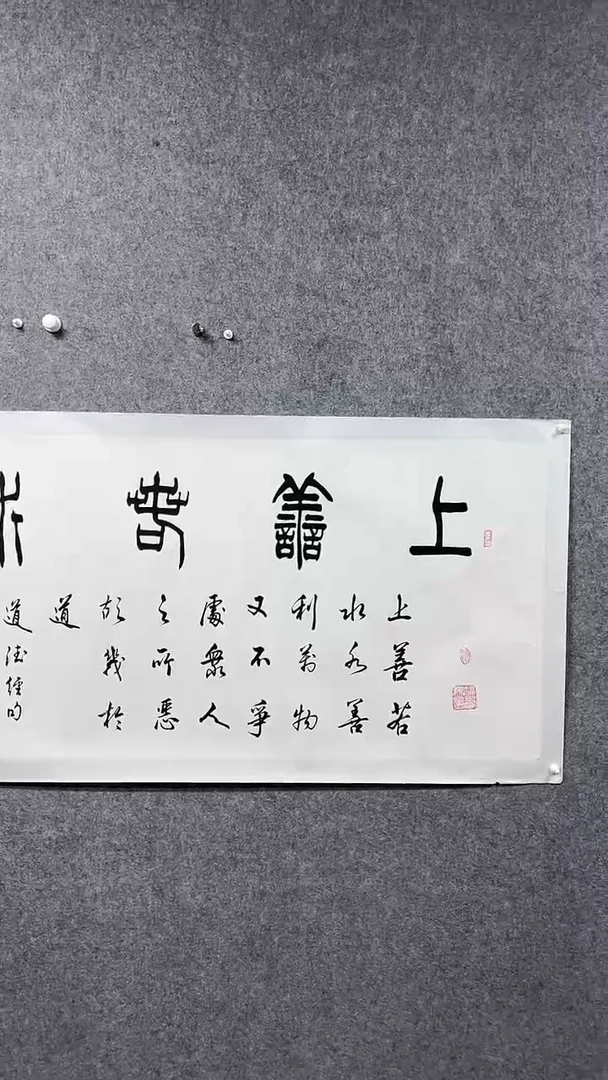 上善若水
上善若
水水善
利萬物
又不爭
處衆人
之所惡
故幾於
道
道德經句